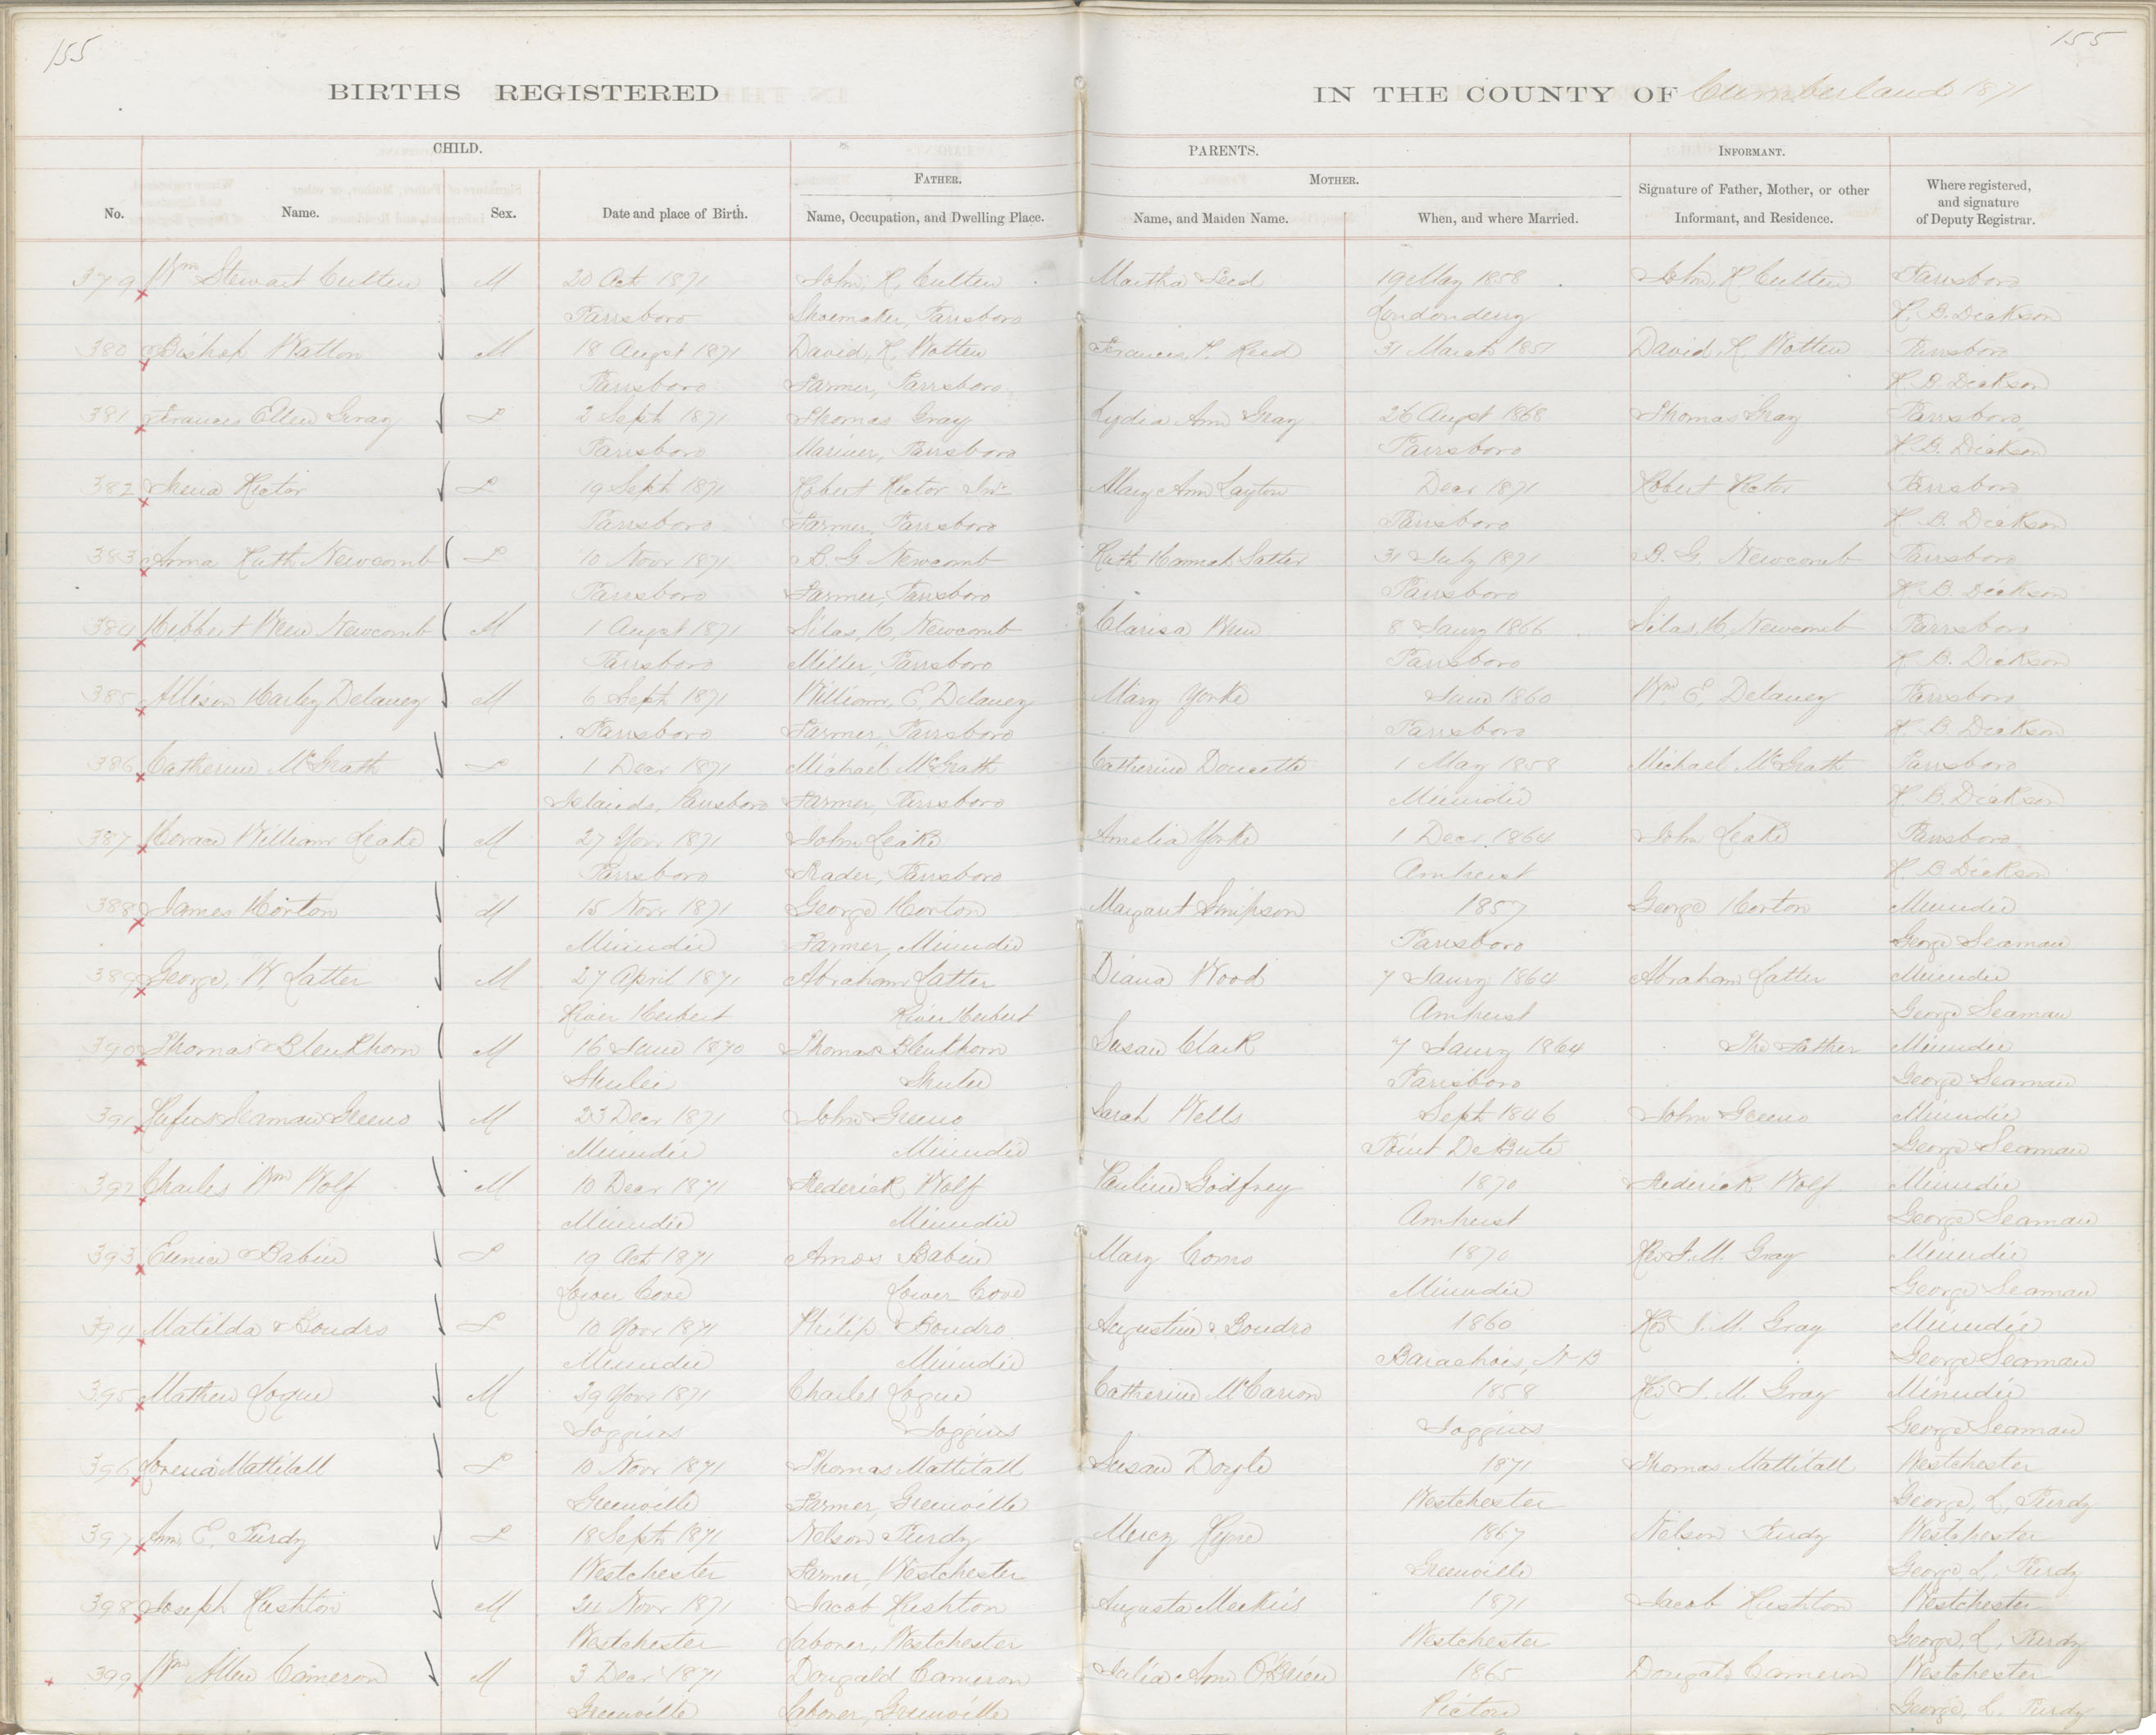 155
155
BIRTHS REGISTERED
IN THE COUNTY OF Cumberland 1871
CHILD.
PARENTS.
INFORMANT.
FATHER.
MOTHER.
No. Name. Sex. Date and place of Birth. Name, Occupation, and Dwelling Place. Name, and Maiden Name. When, and where Married. Signature of Father, Mother, or other Informant, and Residence. Where registered, and signature of Deputy Registrar.
379 Wm Stewart Cutten M 20 Oct 1871 John, R, Cutten Martha Reed 19 May 1858 John, R, Cutten Parrsboro
Parrsboro Shoemaker, Parrsboro Londonderry H. B. Dickson
380 Bishop Watton M 18 Augst 1871 David, R, Wotten Frances, P. Reed 31 March 1851 David, R, Wotten Parrsboro
Parrsboro Farmer, Parrsboro H. B. Dickson
381 Frances Ellen Gray F 2 Sept 1871 Thomas Gray Lydia Ann Gray 26 Augst 1868 Thomas Gray Parrsboro
Parrsboro Mariner, Parrsboro Parrsboro H. B. Dickson
382 Rector F 19 Sept 1871 Robert Rector Mary Ann Layton Decr 1871 Robert Rector Parrsboro
Parrsboro Farmer, Parrsboro Parrsboro H. B. Dickson
383 Anna Ruth Newcomb F 10 Novr 1871 B. G. Newcomb Ruth Hannah Salter 31 July 1871 B. G. Newcomb Parrsboro
Parrsboro Farmer, Parrsboro Parrsboro H. B. Dickson
384 Hibbert Newcomb M 1 Augst 1871 Silas, H, Newcomb Clarisa 8 Janry 1866 Silas, H, Newcomb Parrsboro
Parrsboro Miller, Parrsboro Parrsboro H. B. Dickson
385 Allison Harley Delaney M 6 Sept 1871 William, E, Delaney Mary Yorke 1860 Wm E, Delaney Parrsboro
Parrsboro Farmer, Parrsboro Parrsboro H. B. Dickson
386 Catherine McGrath F 1 Decr 1871 Michael McGrath Catherine Doucette 1 May 1858 Michael McGrath Parrsboro
Islands, Parrsboro Farmer, Parrsboro Minudie H. B. Dickson
387 Horace William Leake M 27 Novr 1871 John Leake Amelia Yorke 1 Decr 1864 John Leake Parrsboro
Parrsboro Trader, Parrsboro Amherst H. B. Dickson
388 James Horton M 15 Novr 1871 George Horton Margaret Simpson 1857 George Horton Minudie
Minudie Farmer, Minudie Parrsboro George Seaman
389 George, W, Latter M 27 April 1871 Abraham Latter Diana Wood 7 Janry 1864 Abraham Latter Minudie
River Herbert River Herbert Amherst George Seaman
390 Thomas Blenkhorn M 16 1870 Thomas Blenkhorn Susan Clark 7 Janry 1864 The Father Minudie
Shulee Shulee Parrsboro George Seaman
391 Rufus Seaman Greeno M 23 Decr 1871 John Greeno Sarah Wells Sept 1846 John Greeno Minudie
Minudie Minudie Point De Bute George Seaman
392 Charles Wm Wolf M 10 Decr 1871 Frederick Wolf Pauline Godfrey 1870 Frederick Wolf Minudie
Minudie Minudie Amherst George Seaman
393 Eunice Babin F 19 Oct 1871 Amos Babin Mary Como 1870 Rev I. M. Gray Minudie
Lower Cove Lower Cove Minudie George Seaman
394 Matilda Boudro F 10 Novr 1871 Philip Boudro Augustine Boudro 1860 Rev I. M. Gray Minudie
Minudie Minudie Barachois, N B George Seaman
395 Mathew Logue M 29 Novr 1871 Charles Logue Catherine McCarron 1858 Rev I. M. Gray Minudie
Joggins Joggins Joggins George Seaman
396 Lorena Mattitall F 10 Novr 1871 Thomas Mattitall Susan Doyle 1871 Thomas Mattitall Westchester
Greenville Farmer, Greenville Westchester George, L, Purdy
397 Ann E, Purdy F 18 Sept 1871 Nelson Purdy Mercy 1867 Nelson Purdy Westchester
Westchester Farmer, Westchester Greenville George, L, Purdy
398 Joseph Rushton M 24 Novr 1871 Jacob Rushton Augusta 1871 Jacob Rushton Westchester
Westchester Laborer, Westchester Westchester George, L, Purdy
399 Wm Allen Cameron M 3 Decr 1871 Dougald Cameron Julia Ann O'Brien 1865 Dougald Cameron Westchester
Greenville Laborer, Greenville Pictou George, L, Purdy